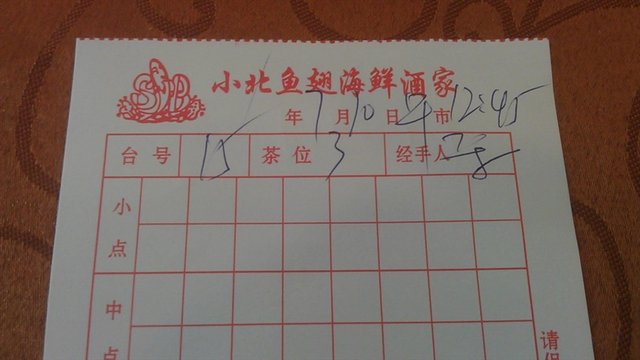 小北鱼翅海鲜酒家
年 7 月 10 日 午 市 12:45
台号 15 茶位 3 经手人
小点
中点
请